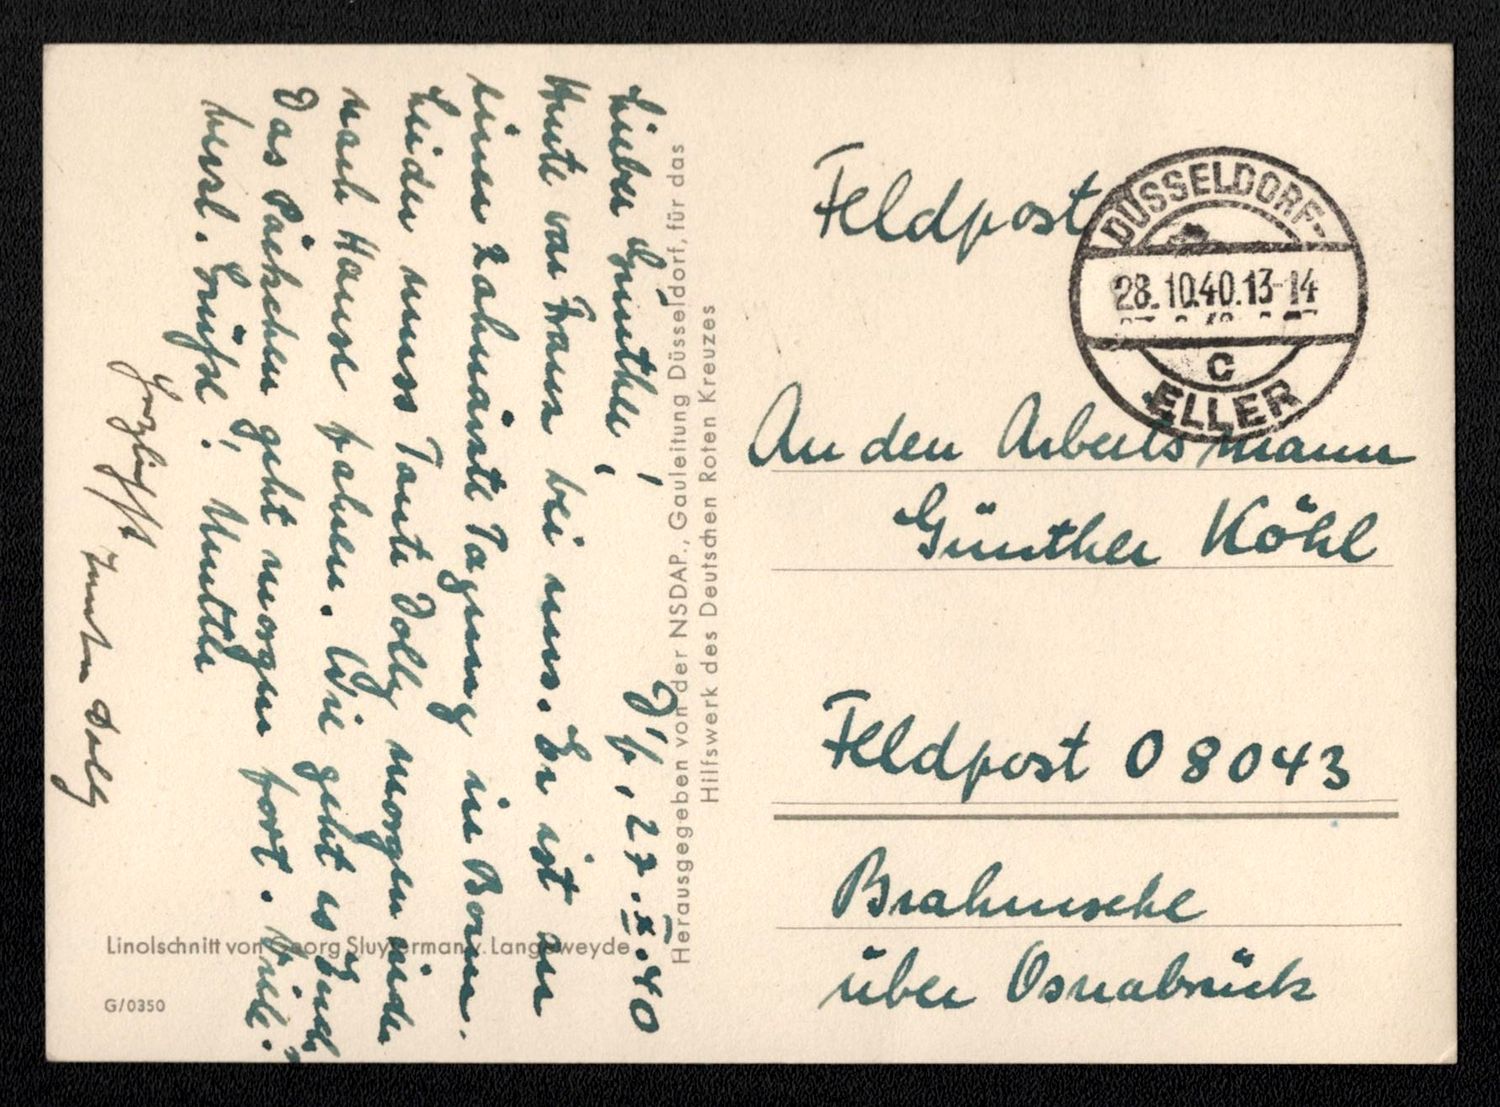 D'f, 27.X.40
Lieber Günther!
Heute war Franz bei uns. Er ist an
einer Tagung in Bonn.
Leider muss Tante Dolly morgen wieder
nach Hause fahren. Wie geht es Euch
Das Päckchen geht morgen fort. Viele
herzl. Grüsse! Mutter
Herzlichst
Tante Dolly
Herausgegeben von der NSDAP., Gauleitung Düsseldorf, für das
Hilfswerk des Deutschen Roten Kreuzes
Linolschnitt von Georg Sluyterman v. Langeweyde
G/0350
Feldpost
DÜSSELDORF-
28.10.40.13-14
c
ELLER
An den Arbeitsmann
Günther Köhl
Feldpost 08043
Brahmsche
über Osnabrück